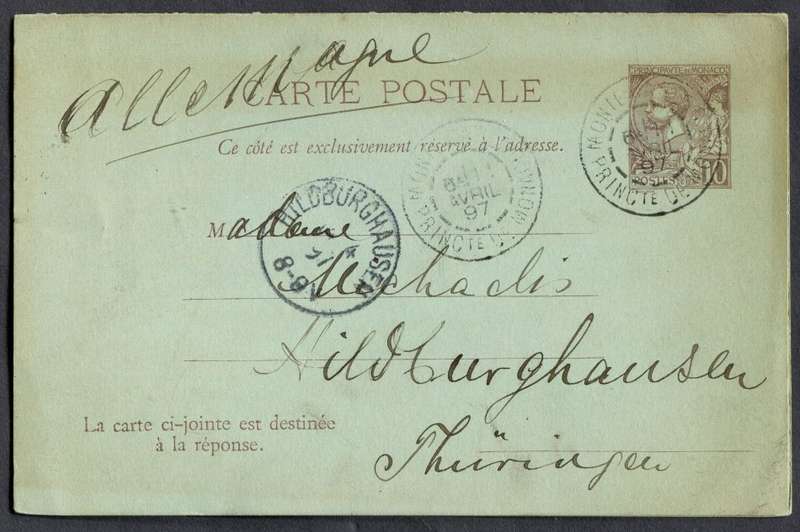 Allemagne
CARTE POSTALE
Ce côté est exclusivement réservé à l'adresse.
PRINCIPAUTÉ DE MONACO
POSTES
10
MONTE
AVRIL
97
PRINCTE DE MON
MON
AVRIL
97
PRINCTE DE MONACO
HILDBURGHAUSEN
97
8-9V
Madame
Michaelis
Hildburghausen
Thüringen
La carte ci-jointe est destinée
à la réponse.